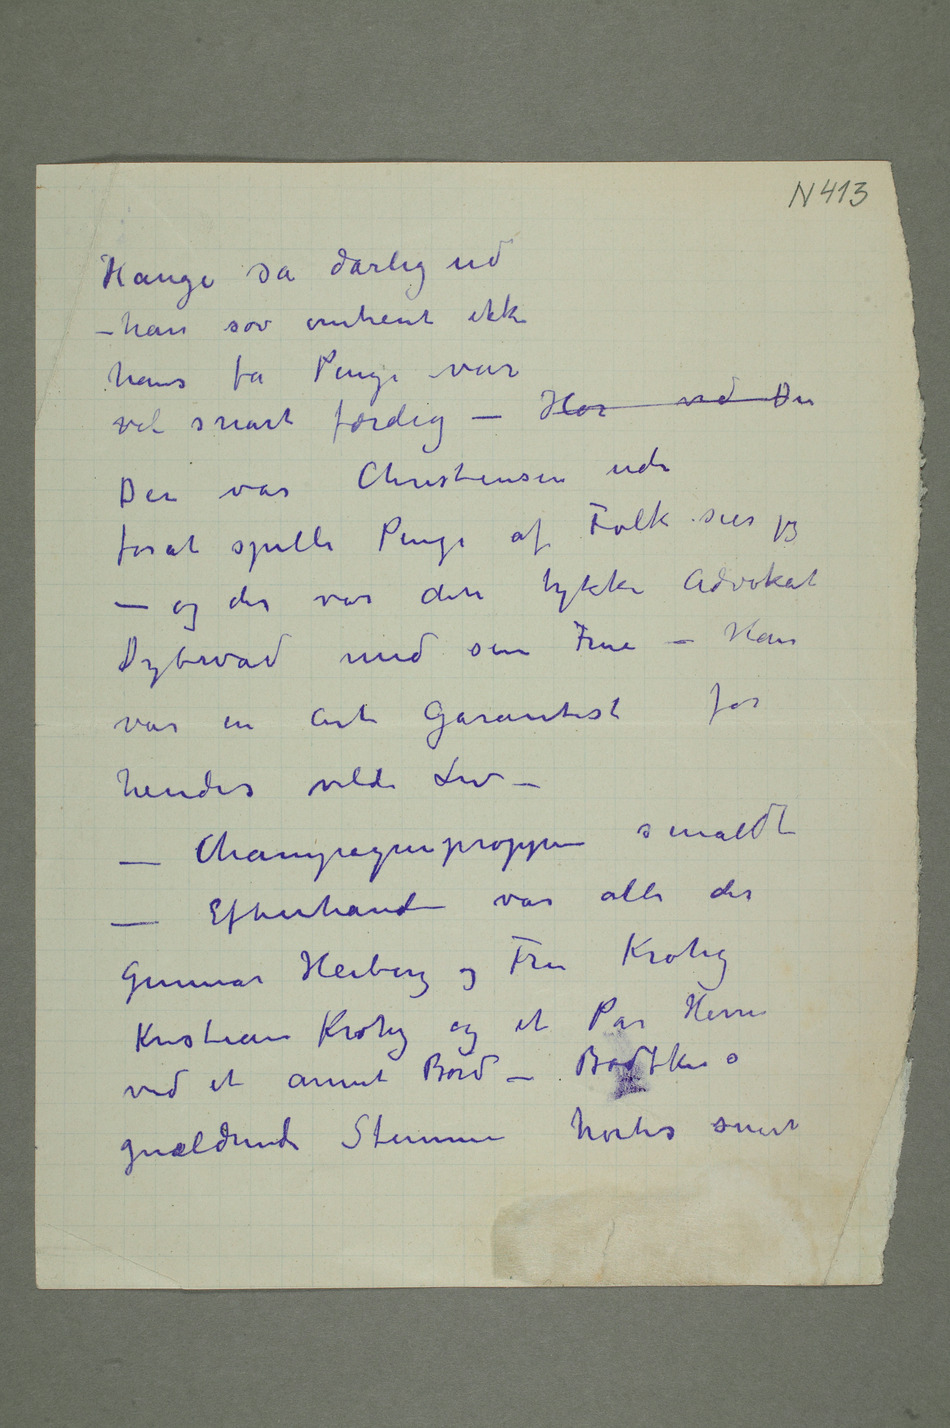 N 413
Hauge så dårlig ud
– han sov omtrent ikke
hans få Penge var
vel snart færdig – Hør ved Du
Der var Christensen ude
forat spille Penge af Folk sier jeg
– og der var den tykke Advokat
Dybwad med sin Frue – Han
var en Art Garantist for
hendes vilde Liv –
– Champagneproppen smaldt
– Efterhånden var alle der
Gunnar Heiberg og Fru Krohg
Kristian Krohg og et Par Herrer
ved et annet Bord – Bødtkers
gnældrende Stemme hørtes snart